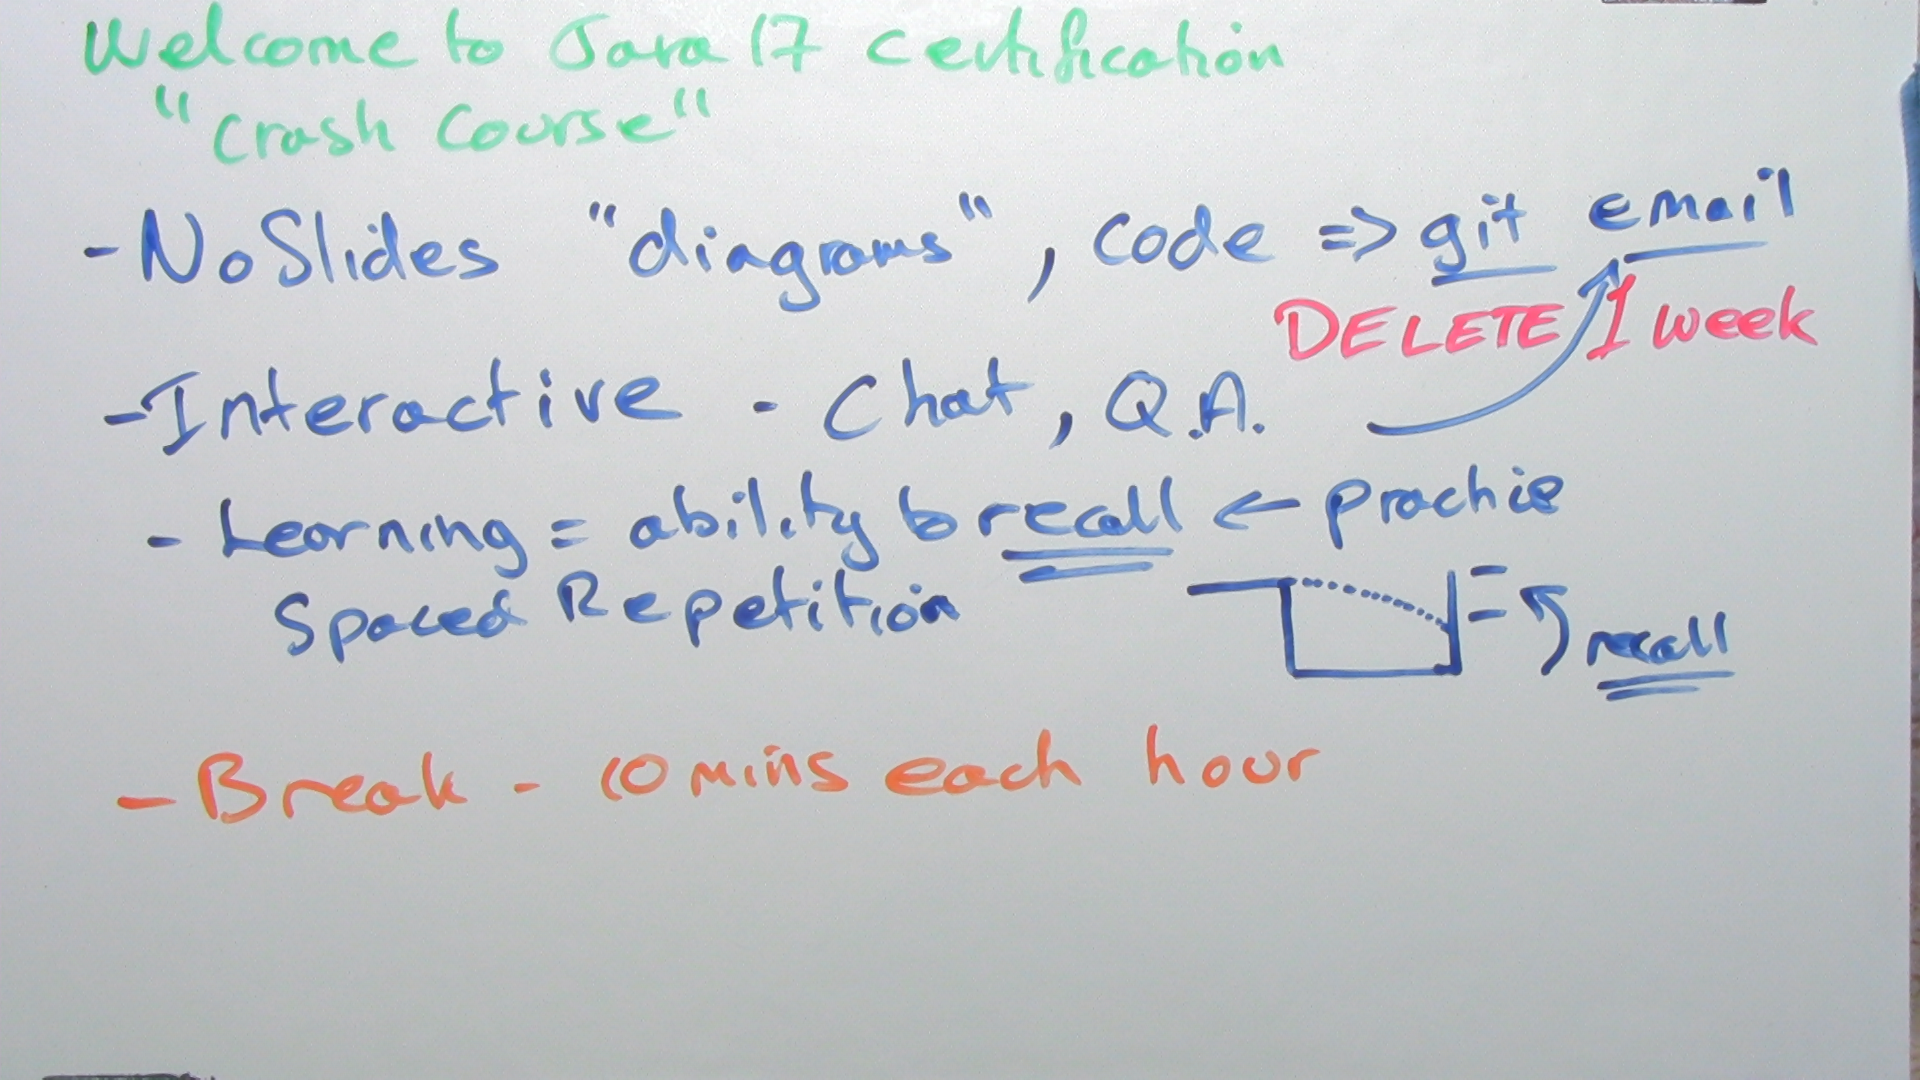 Welcome to Java 17 Certification
"Crash Course"
- No Slides "diagrams", Code => git email
DELETE 1 week
- Interactive - Chat, Q.A.
- Learning = ability to recall <- practice
Spaced Repetition
recall
- Break - 10 mins each hour